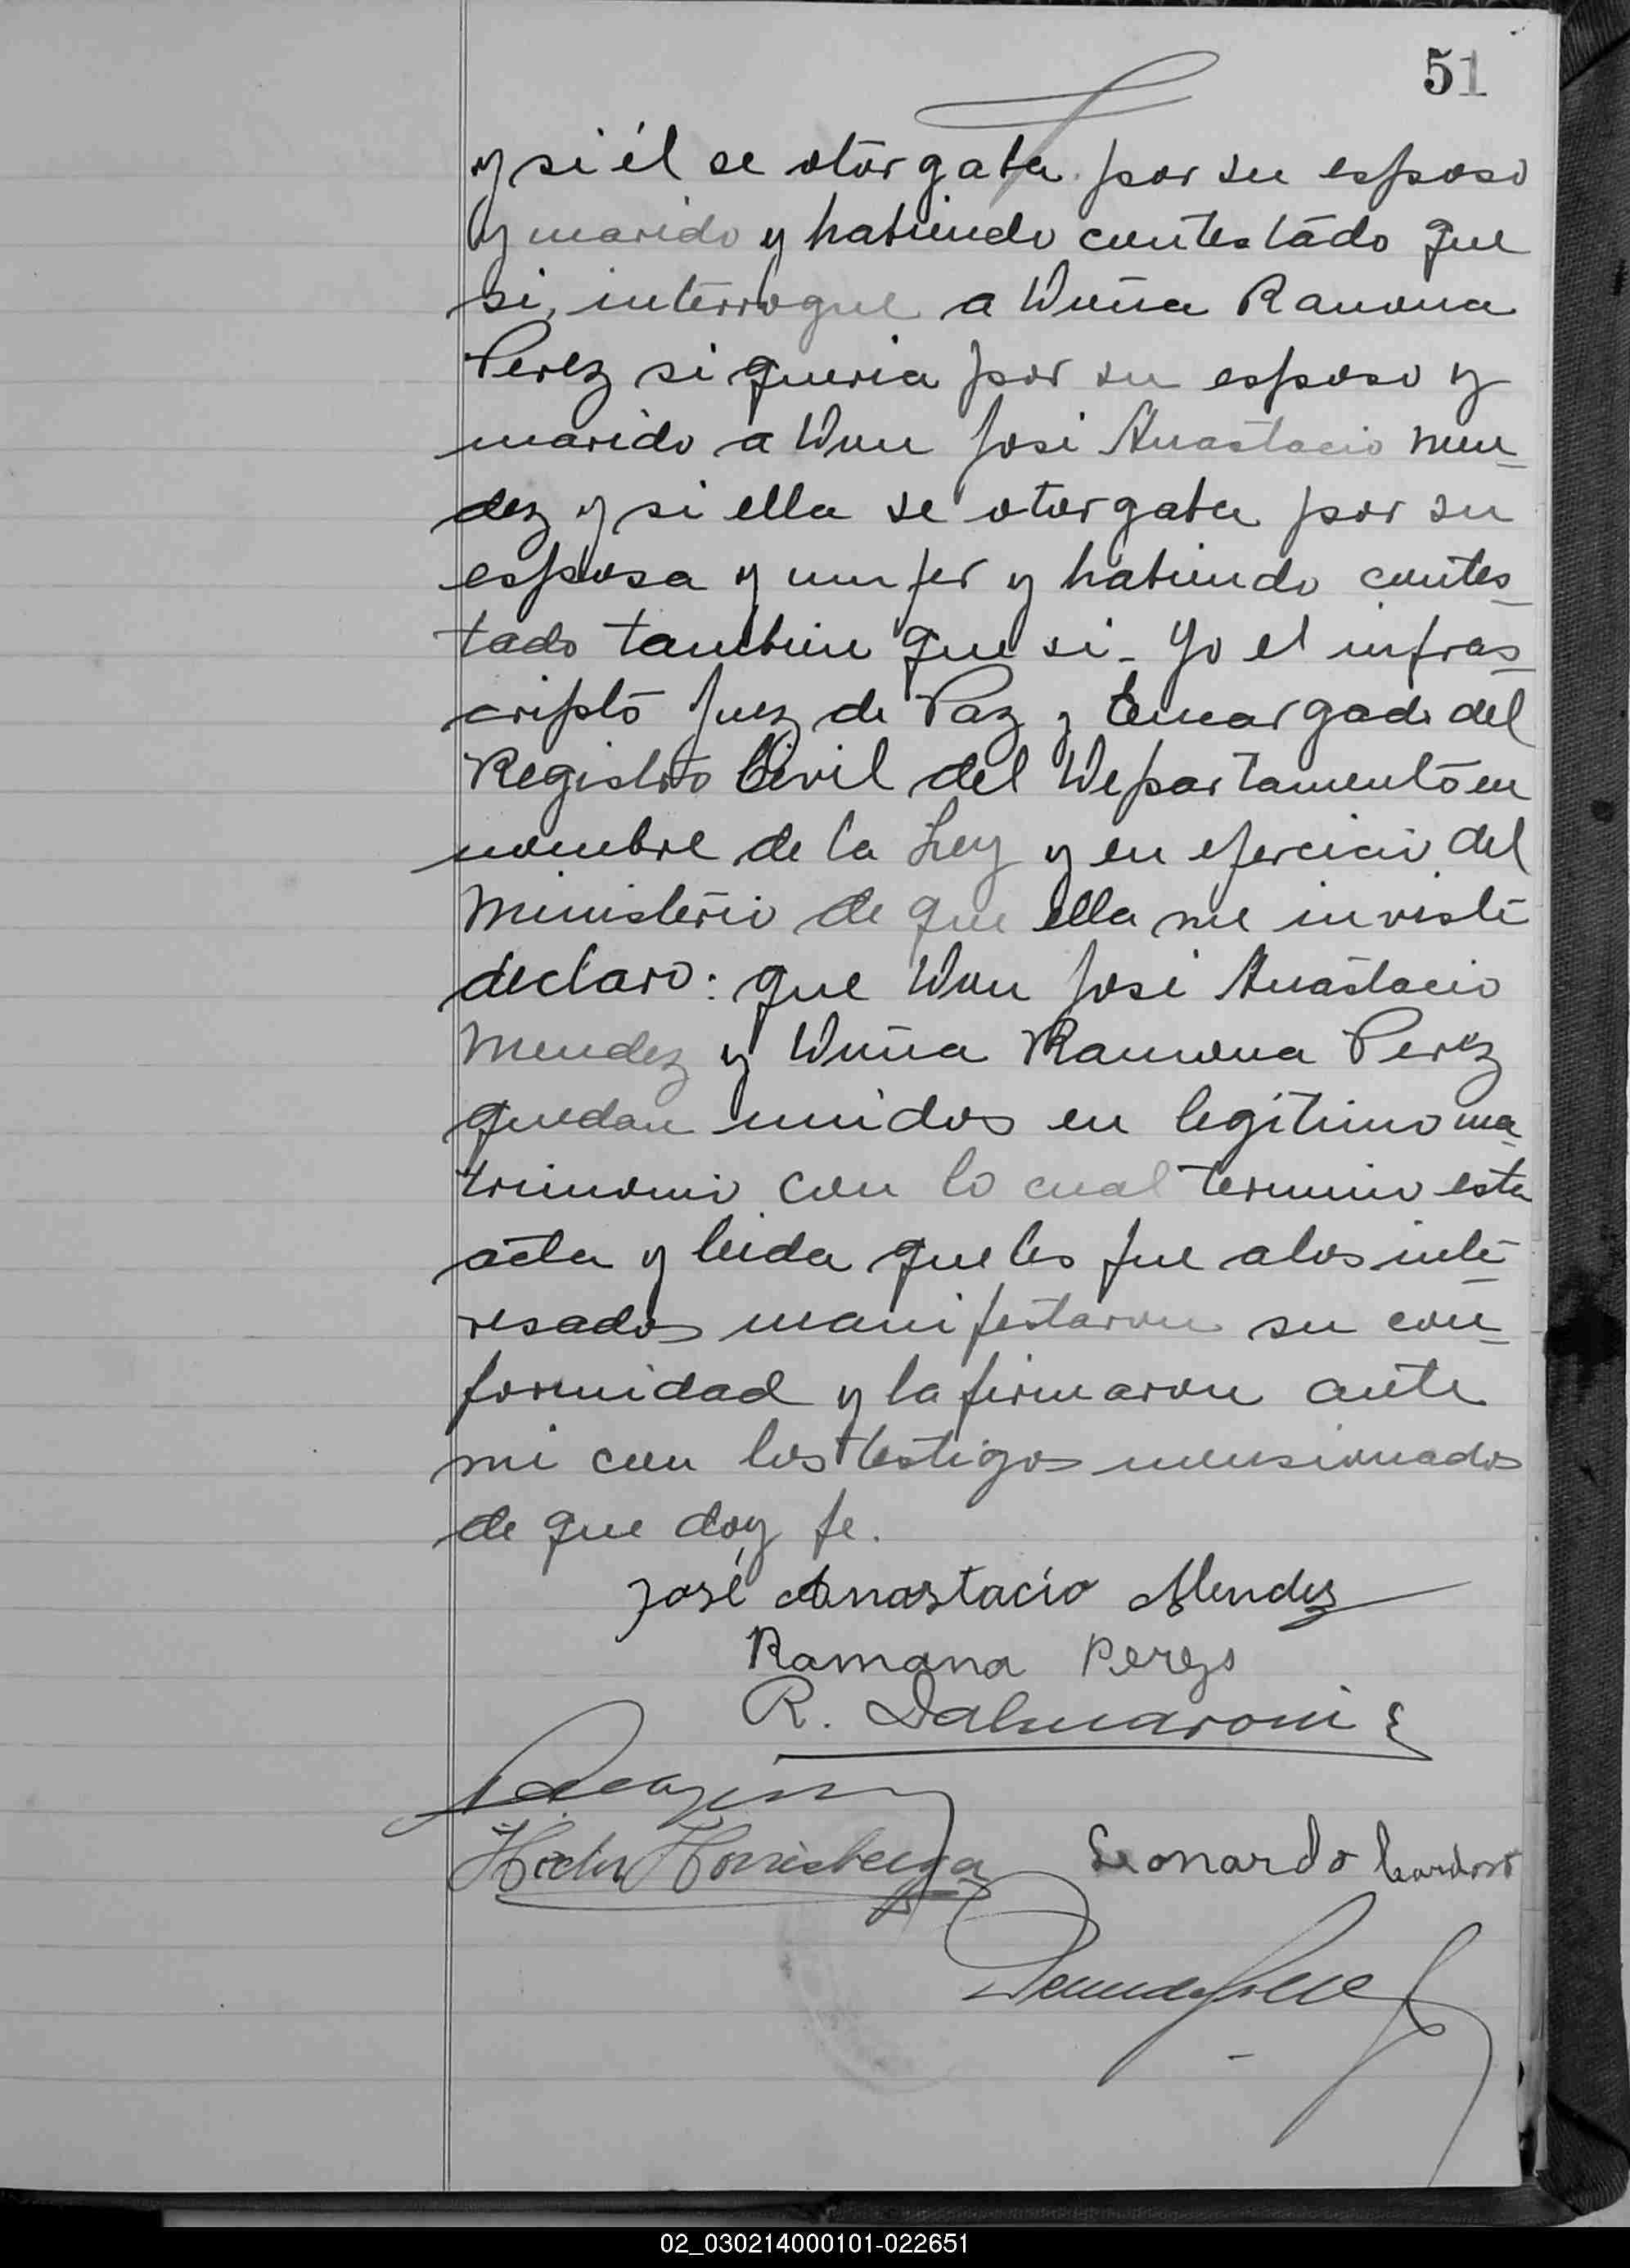 51
y si él se otorgaba por su esposo
y marido y habiendo contestado que
si, interrogue a Doña Ramona
Perez si queria por su esposo y
marido a Don José Anastacio Men-
dez y si ella se otorgaba por su
esposa y mujer y habiendo contes-
tado tambien que si - Yo el infras-
cripto Juez de Paz y Encargado del
Registro Civil del Departamento en
nombre de la Ley y en ejercicio del
Ministerio de que ella me inviste
declaro: que Don José Anastacio
Mendez y Doña Ramona Perez
quedan unidos en legítimo ma-
trimonio con lo cual termino esta
acta y leida que les fue a los inte-
resados manifestaron su con-
formidad y la firmaron ante
mi con los testigos mensionados
de que doy fe.
José Anastacio Mendez
Ramana Peres
R. Dalmaroni
Leonardo Cardoso
02_030214000101-022651